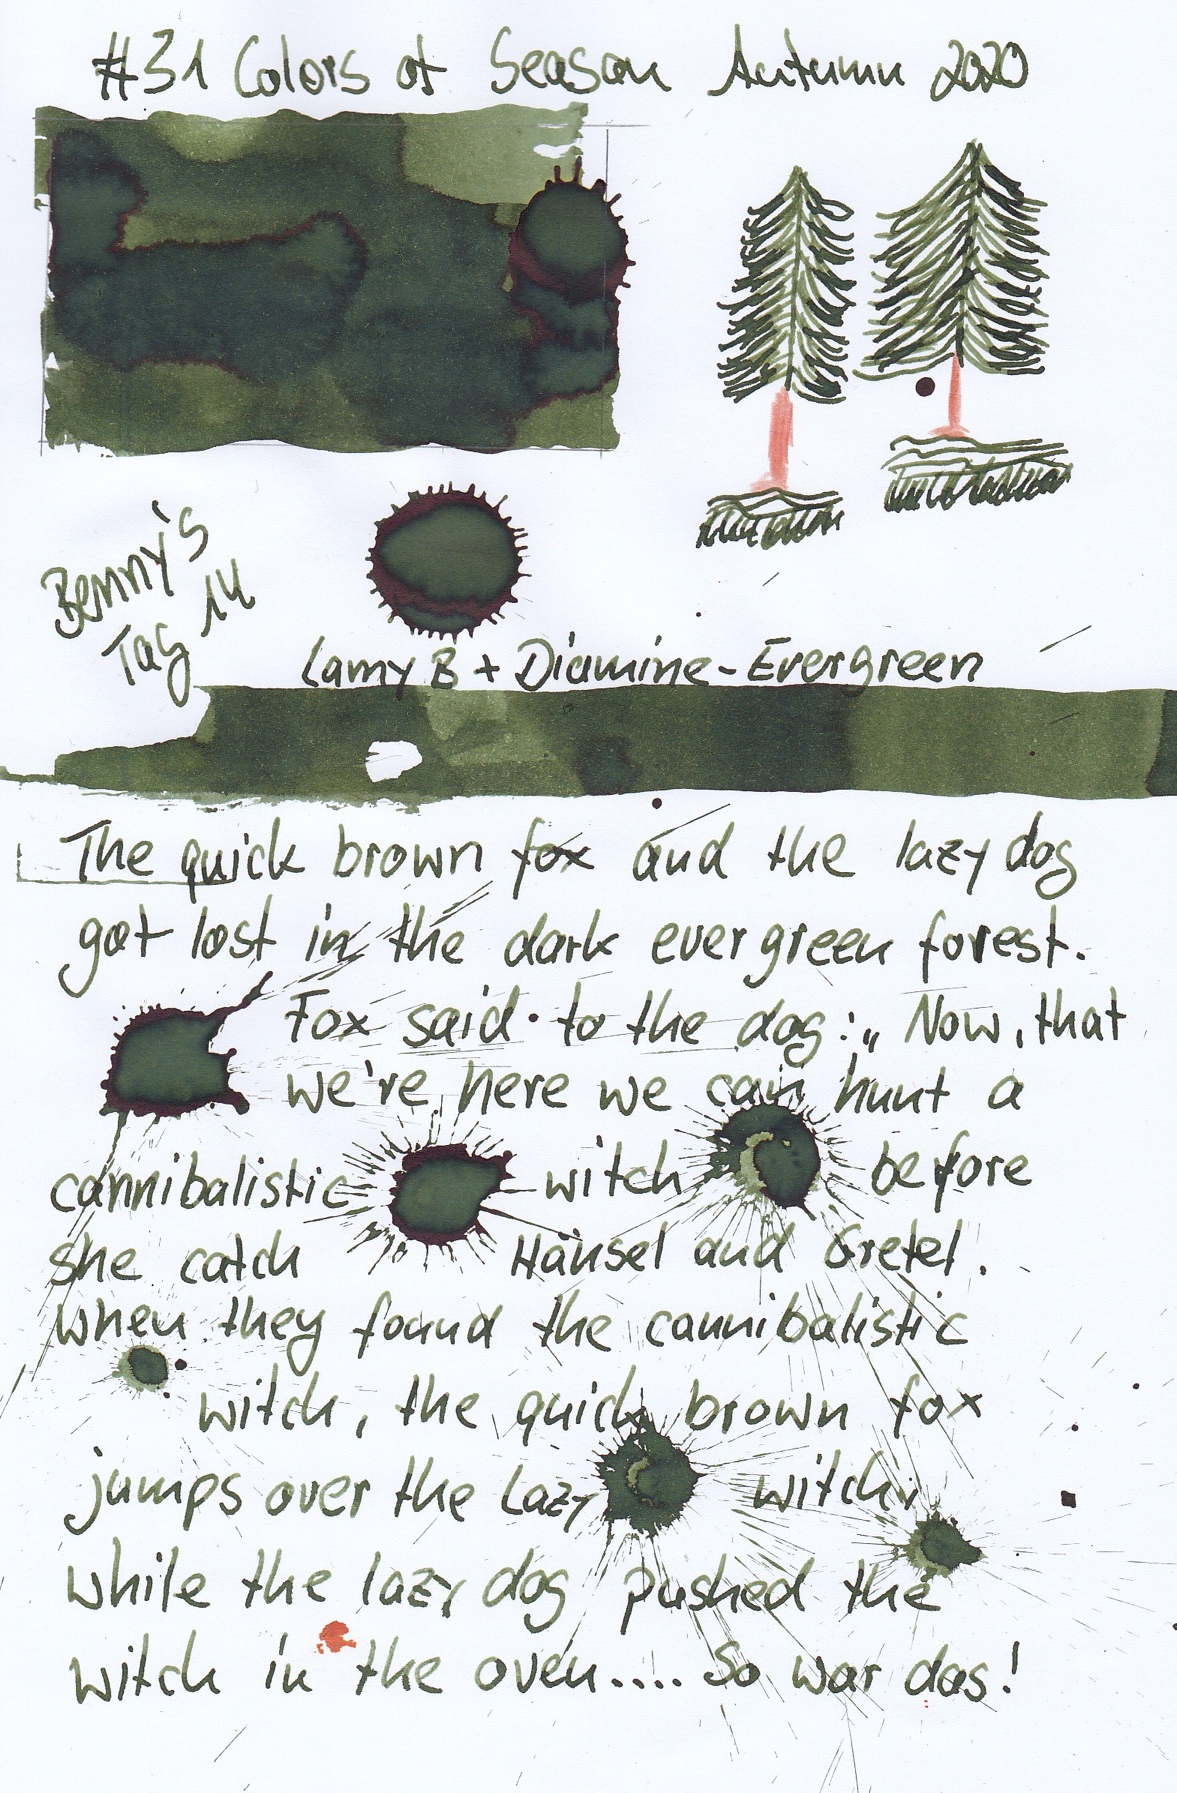 #31 Colors of Season Autumn 2020
Benny's
Tag 14
Lamy B + Diamine-Evergreen
The quick brown fox and the lazy dog
got lost in the dark evergreen forest.
Fox said to the dog: „ Now, that
we're here we can hunt a
cannibalistic witch before
she catch Hänsel and Gretel.
When they found the cannibalistic
witch, the quick brown fox
jumps over the lazy witch,
while the lazy dog pushed the
witch in the oven.... So war das!